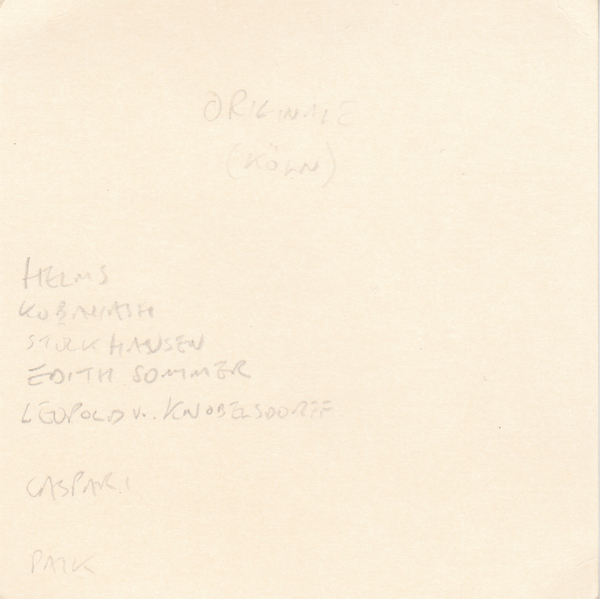 ORIGINALE
(KÖLN)
HELMS
KOBAYASHI
STOCKHAUSEN
EDITH SOMMER
LEOPOLD v. KNOBELSDORFF
CASPARI
PAIK